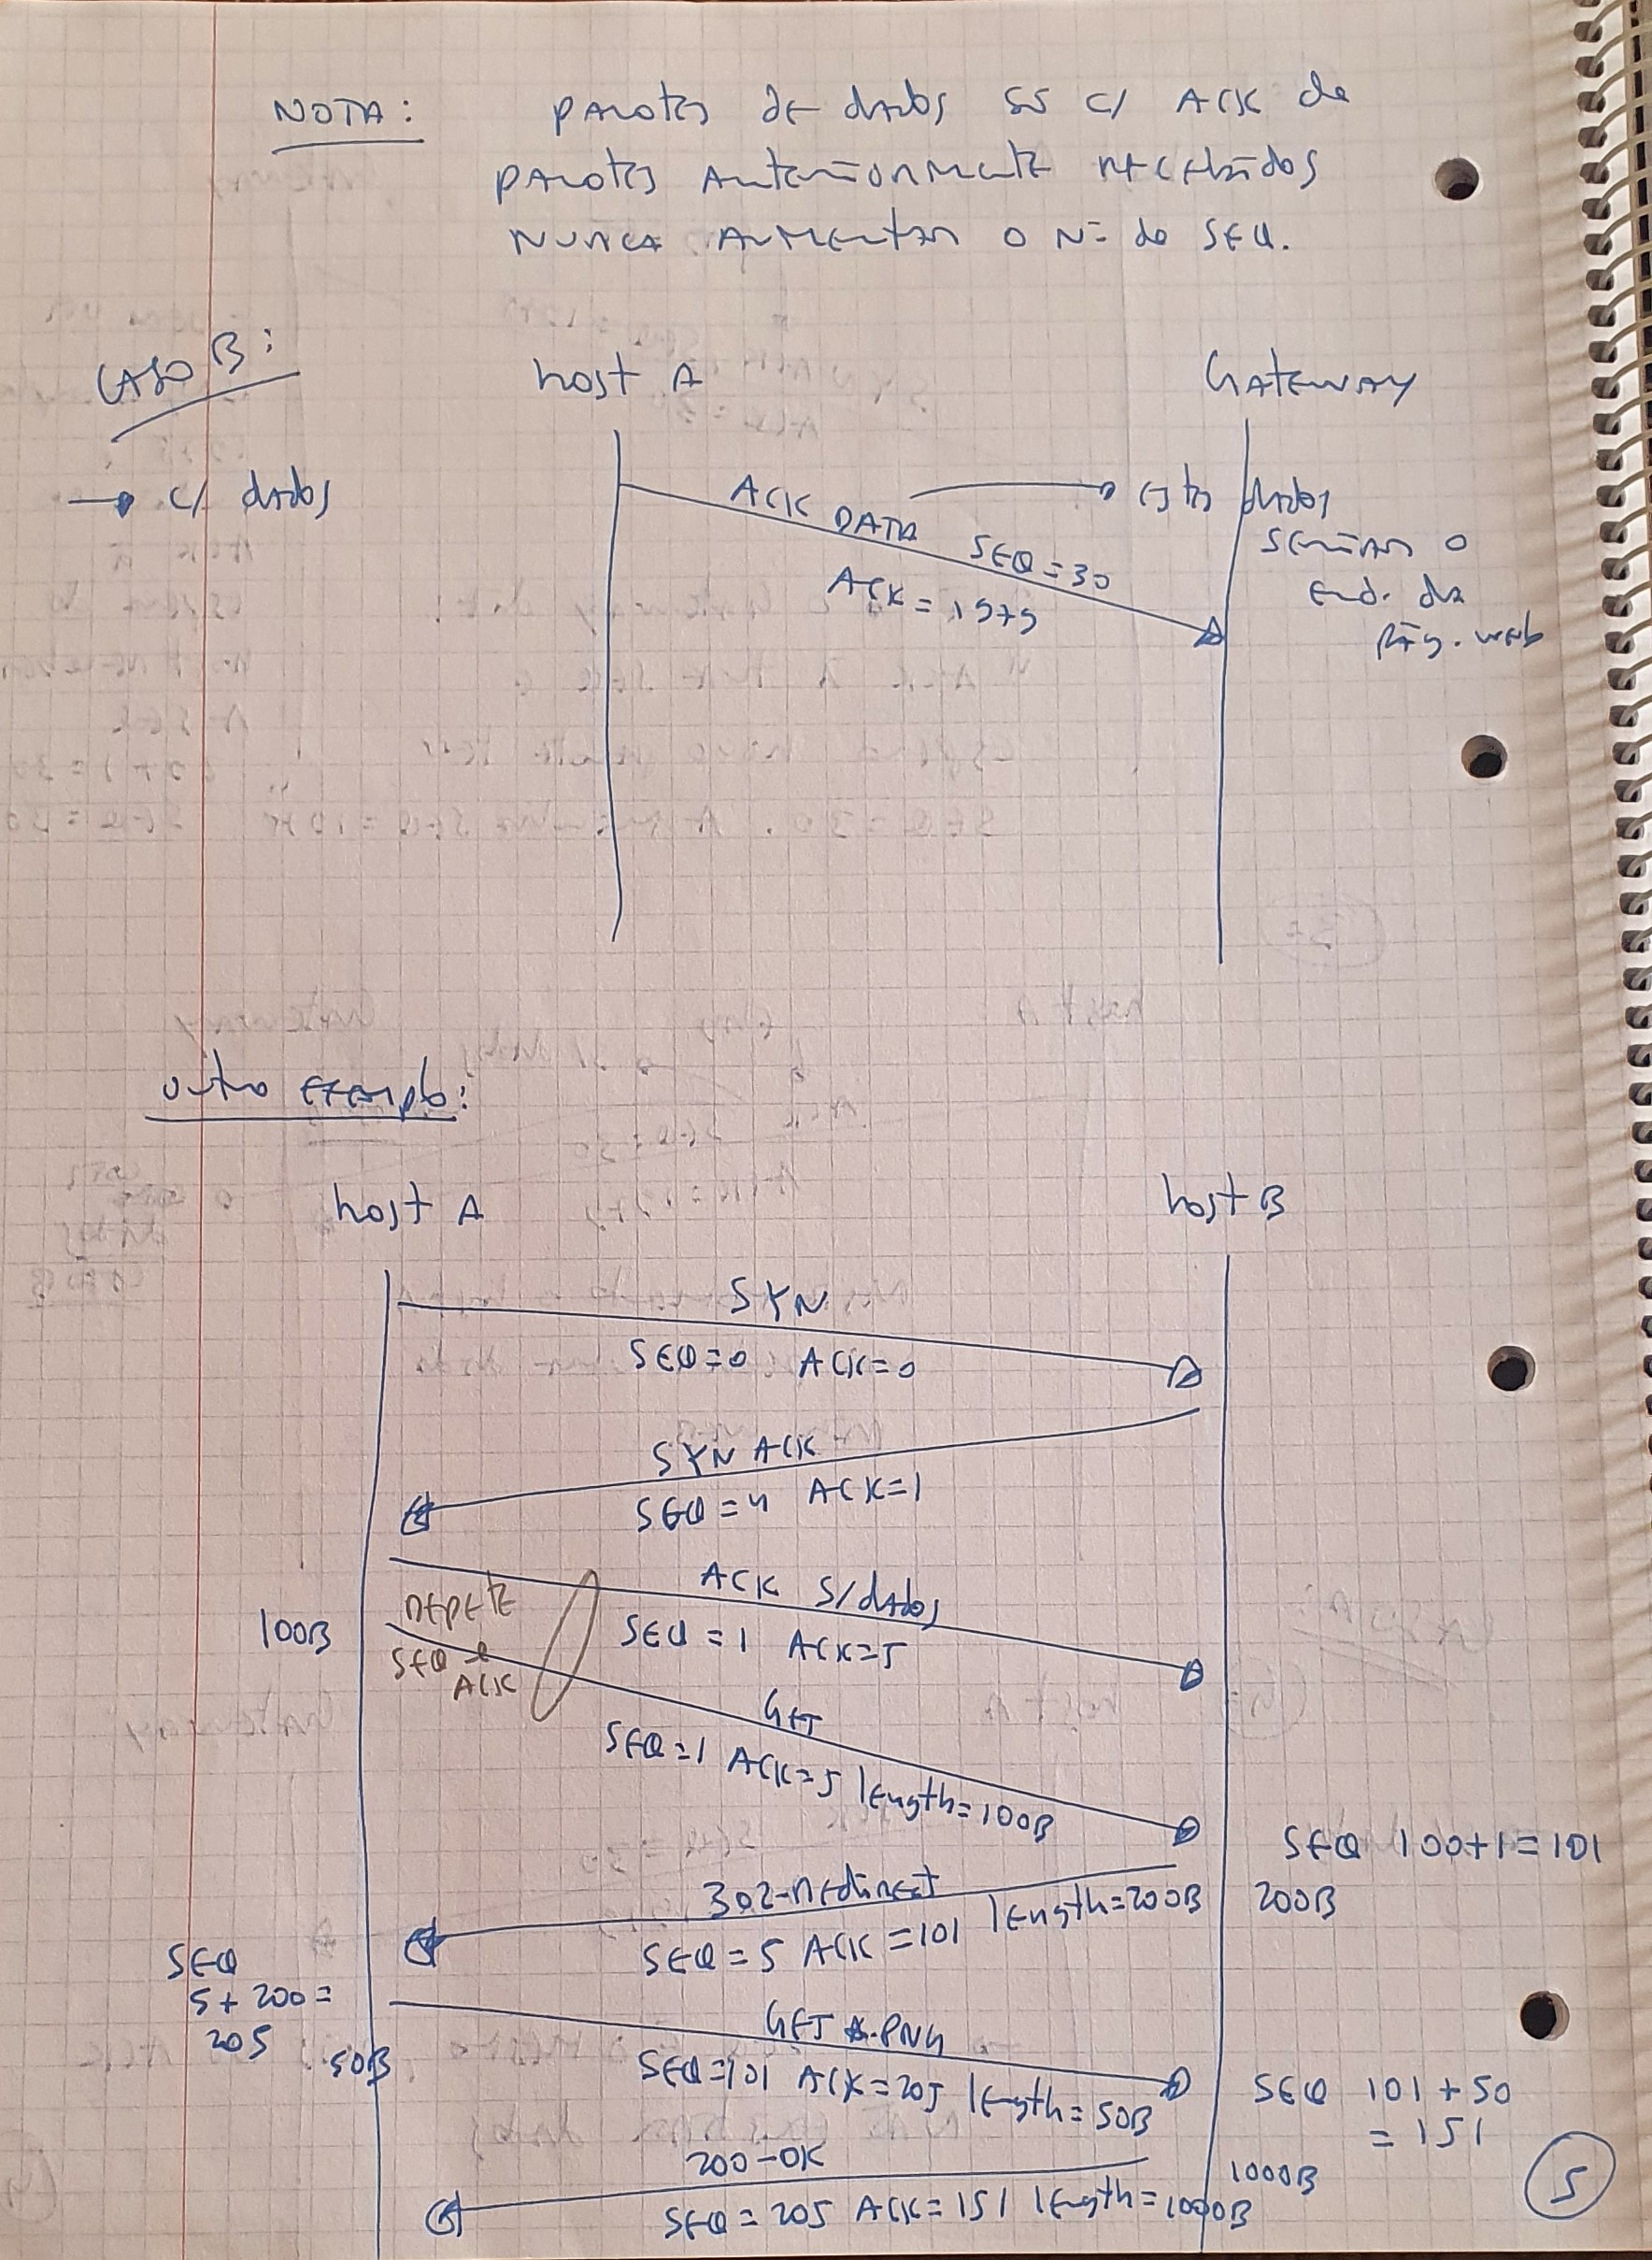 NOTA: pacotes de dados só c/ ACK de
pacotes anteriormente recebidos
nunca aumentam o Nº de SEQ.
CASO B:
host A
GATEWAY
→ c/ dados
ACK DATA → estes dados
SEQ=30
ACK = 1979
seriam o
end. da
pág. web
outro exemplo:
host A
host B
SYN
SEQ=0 ACK=0
SYN ACK
SEQ=4 ACK=1
ACK s/dados
SEQ=1 ACK=5
100B
REPETE
SEQ e
ACK
GET
SEQ=1 ACK=5 length=100B
SEQ 100+1=101
302-redirect
SEQ=5 ACK=101 length=200B
200B
SEQ
5+200=
205
50B
GET .PNG
SEQ=101 ACK=205 length=50B
SEQ 101+50
=151
200-OK
SEQ=205 ACK=151 length=1000B
1000B
5